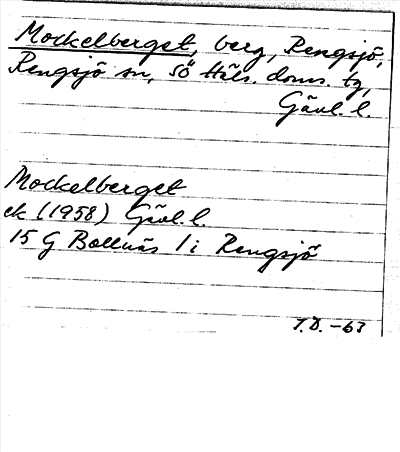 Mockelberget, berg, Rengsjö,
Rengsjö sn, Sö Häls. doms. tg,
Gävl. l.
Mockelberget
ek (1958) Gävl. l.
15 G Bollnäs 1 i Rengsjö
T.D. -63